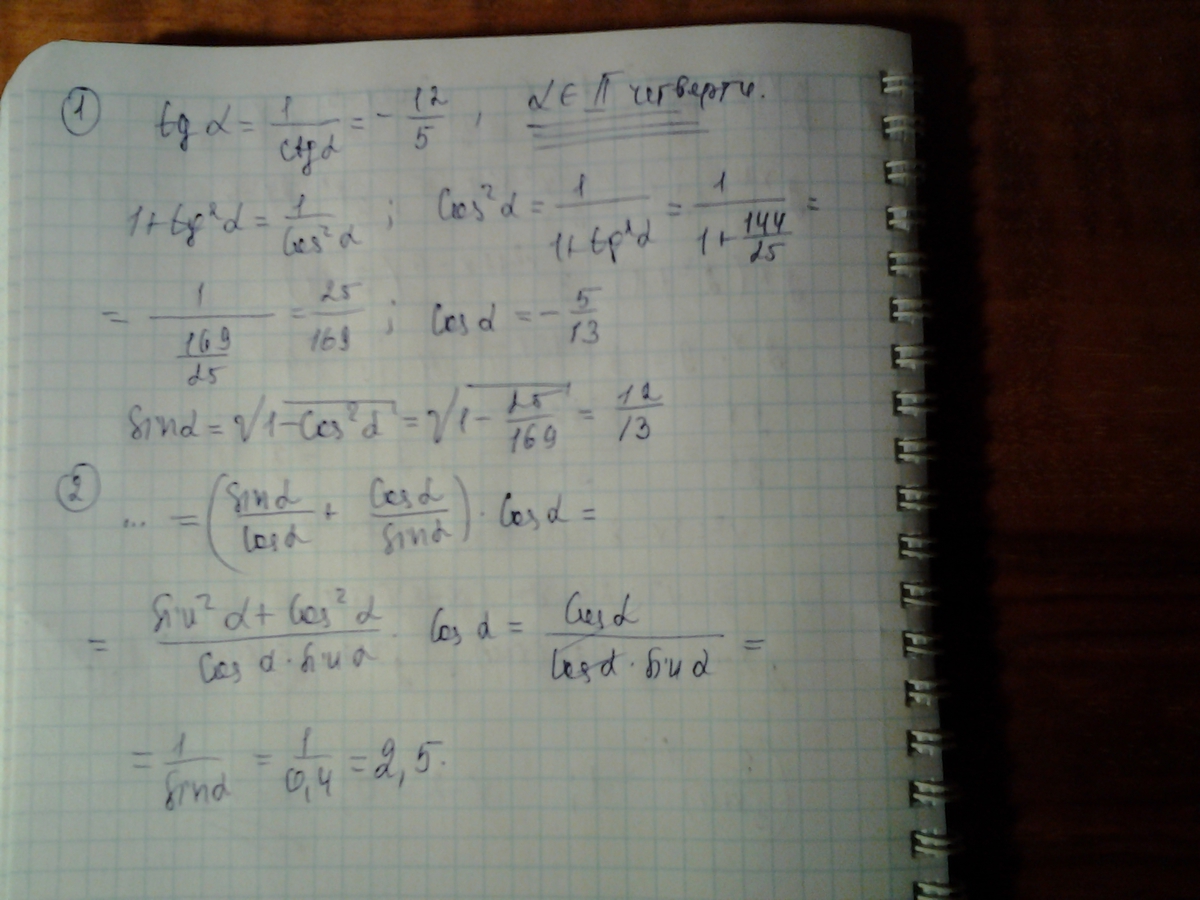 ① tg α = 1/ctg α = - 12/5 , α ∈ II четверти.
1+tg²α = 1/cos²α ; Cos²α = 1/(1+tg²α) = 1/(1+144/25) =
= 1/(169/25) = 25/169 ; Cos α = - 5/13
Sin α = √(1-Cos²α) = √(1 - 25/169) = 12/13
② ... = (Sin α/Cos α + Cos α/Sin α) · Cos α =
= (Sin²α + Cos²α)/(Cos α · Sin α) · Cos α = Cos α/(Cos α · Sin α) =
= 1/Sin α = 1/0,4 = 2,5.